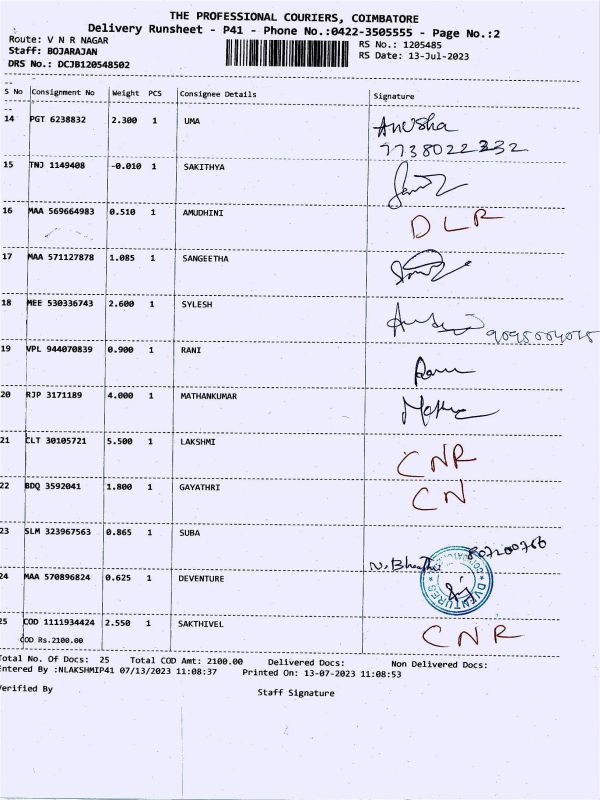 THE PROFESSIONAL COURIERS, COIMBATORE
Delivery Runsheet - P41 - Phone No.:0422-3505555 - Page No.:2
Route: V N R NAGAR
RS No.: 1205485
Staff: BOJARAJAN
RS Date: 13-Jul-2023
DRS No.: DCJB120548502
S No Consignment No Weight PCS Consignee Details Signature
14 PGT 6238832 2.300 1 UMA Anusha
7738022332
15 TNJ 1149408 -0.010 1 SAKITHYA
16 MAA 569664983 0.510 1 AMUDHINI DLR
17 MAA 571127878 1.085 1 SANGEETHA
18 MEE 530336743 2.600 1 SYLESH
19 VPL 944070839 0.900 1 RANI Rani
20 RJP 3171189 4.000 1 MATHANKUMAR
21 CLT 30105721 5.500 1 LAKSHMI CNR
22 BDQ 3592041 1.800 1 GAYATHRI CN
23 SLM 323967563 0.865 1 SUBA
24 MAA 570896824 0.625 1 DEVENTURE DVENTURES
25 COD 1111934424 2.550 1 SAKTHIVEL CNR
COD Rs.2100.00
Total No. Of Docs: 25 Total COD Amt: 2100.00 Delivered Docs: Non Delivered Docs:
Entered By :NLAKSHMIP41 07/13/2023 11:08:37 Printed On: 13-07-2023 11:08:53
Verified By
Staff Signature